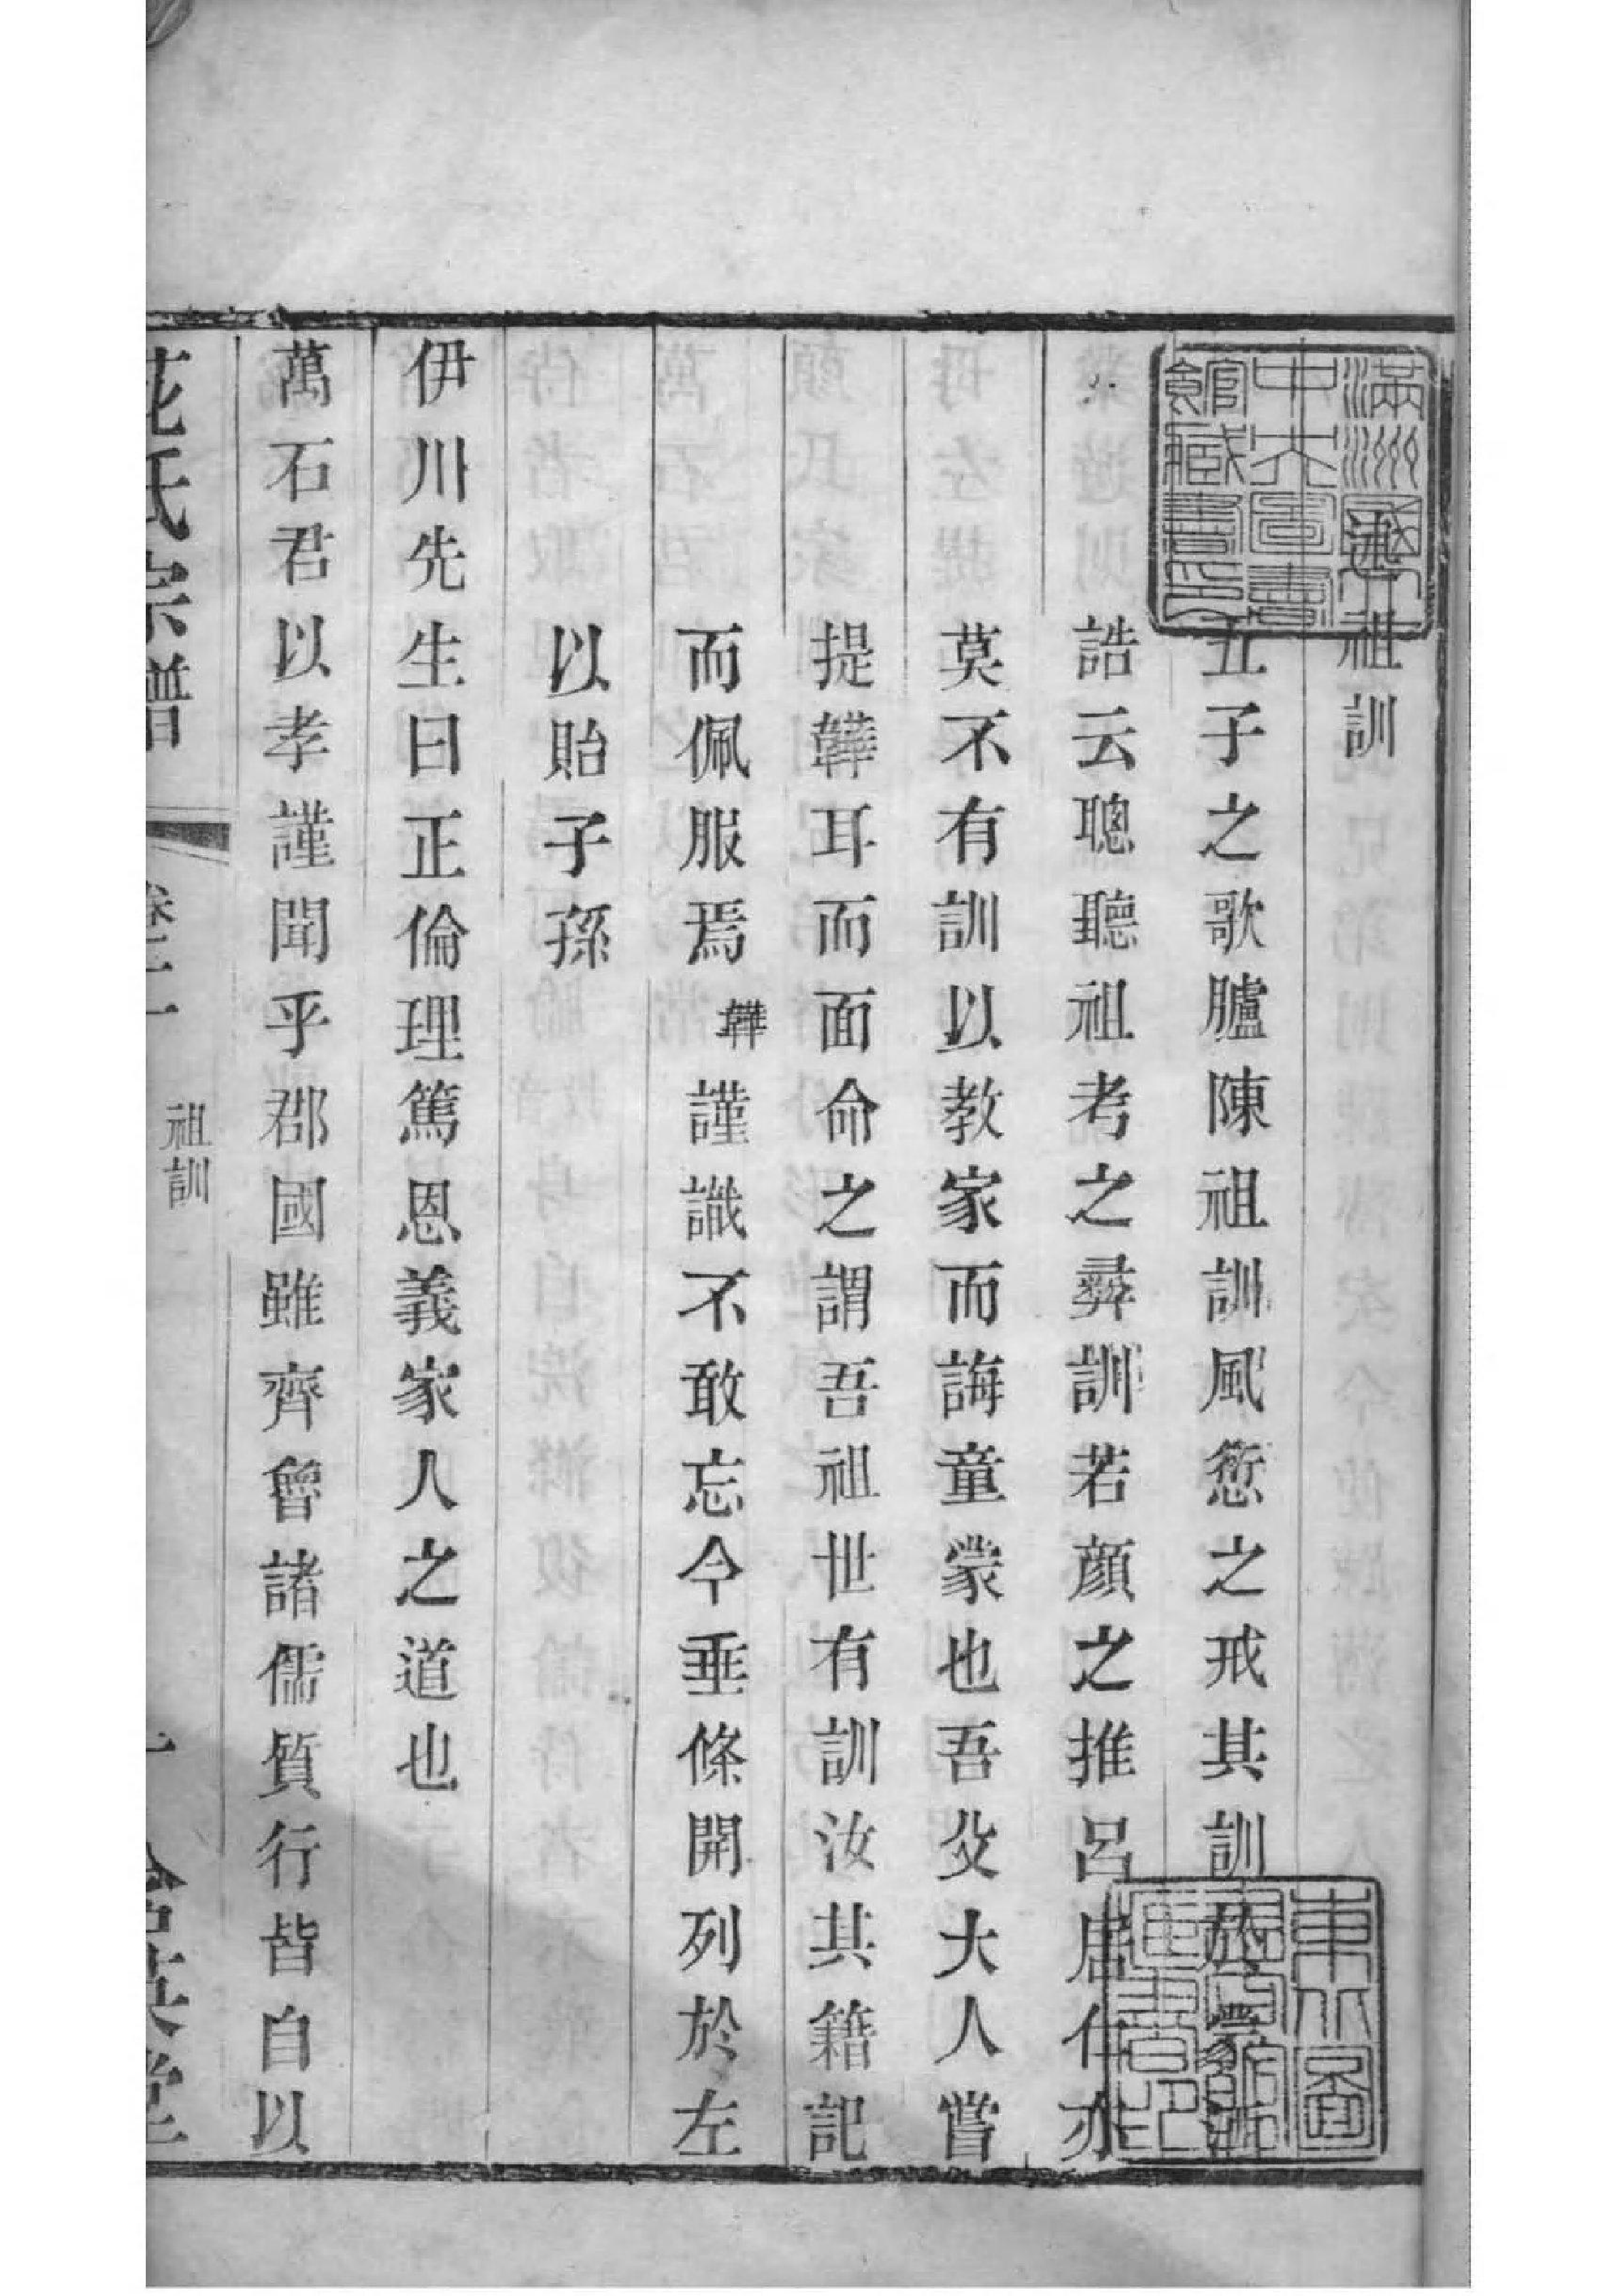 述祖訓
五子之歌臚陳祖訓風愆之戒其訓於蒙酒
誥云聰聽祖考之彝訓若顏之推呂居仁亦
莫不有訓以教家而誨童蒙也吾父大人嘗
提韡耳而面命之謂吾祖世有訓汝其籍記
而佩服焉韡謹識不敢忘今垂條開列於左
以貽子孫
伊川先生曰正倫理篤恩義家人之道也
萬石君以孝謹聞乎郡國雖齊魯諸儒質行皆自以
花氏宗譜
卷二
祖訓
一
滿洲國立
中央圖書
館藏書印
東北圖